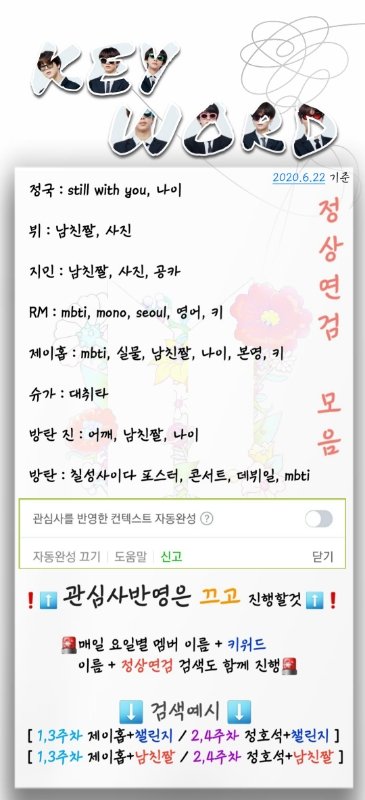 KEY
WORD
2020.6.22 기준
정상연검 모음
정국 : still with you, 나이
뷔 : 남친짤, 사진
지민 : 남친짤, 사진, 공카
RM : mbti, mono, seoul, 영어, 키
제이홉 : mbti, 실물, 남친짤, 나이, 본영, 키
슈가 : 대취타
방탄 진 : 어깨, 남친짤, 나이
방탄 : 칠성사이다 포스터, 콘서트, 데뷔일, mbti
관심사를 반영한 컨텍스트 자동완성 ?
자동완성 끄기 | 도움말 | 신고 닫기
❗⬆️ 관심사반영은 끄고 진행할것 ⬆️❗
🚨매일 요일별 멤버 이름 + 키워드
이름 + 정상연검 검색도 함께 진행🚨
⬇️ 검색예시 ⬇️
[ 1,3주차 제이홉+챌린지 / 2,4주차 정호석+챌린지 ]
[ 1,3주차 제이홉+남친짤 / 2,4주차 정호석+남친짤 ]